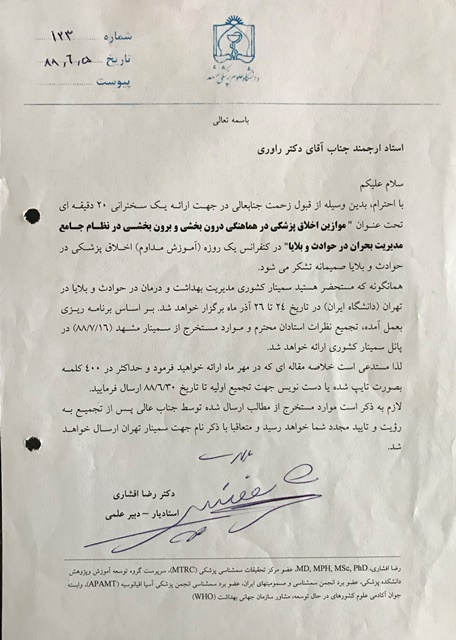 شماره ۱۲۳
تاریخ ۸۸,۶,۵
پیوست
دانشگاه علوم پزشکی مشهد
باسمه تعالی
استاد ارجمند جناب آقای دکتر راوری
سلام علیکم
با احترام، بدین وسیله از قبول زحمت جنابعالی در جهت ارائه یک سخنرانی ۲۰ دقیقه ای
تحت عنوان "موازین اخلاق پزشکی در هماهنگی درون بخشی و برون بخشی در نظام جامع
مدیریت بحران در حوادث و بلایا" در کنفرانس یک روزه (آموزش مداوم) اخلاق پزشکی در
حوادث و بلایا صمیمانه تشکر می شود.
همانگونه که مستحضر هستید سمینار کشوری مدیریت بهداشت و درمان در حوادث و بلایا در
تهران (دانشگاه ایران) در تاریخ ۲۴ تا ۲۶ آذر ماه برگزار خواهد شد. بر اساس برنامه ریزی
بعمل آمده، تجمیع نظرات استادان محترم و موارد مستخرج از سمینار مشهد (۸۸/۷/۱۶) در
پانل سمینار کشوری ارائه خواهد شد.
لذا مستدعی است خلاصه مقاله ای که در مهر ماه ارائه خواهید فرمود و حداکثر در ۴۰۰ کلمه
بصورت تایپ شده یا دست نویس جهت تجمیع اولیه تا تاریخ ۸۸/۶/۳۰ ارسال فرمایید.
لازم به ذکر است موارد مستخرج از مطالب ارسال شده توسط جناب عالی پس از تجمیع به
رؤیت و تایید مجدد شما خواهد رسید و متعاقبا با ذکر نام جهت سمینار تهران ارسال خواهد
شد.
دکتر رضا افشاری
استادیار – دبیر علمی
رضا افشاری، MD, MPH, MSc, PhD، عضو مرکز تحقیقات سمشناسی پزشکی (MTRC)، سرپرست گروه توسعه آموزش وپژوهش
دانشکده پزشکی، عضو برد انجمن سمشناسی و مسمومیتهای ایران، عضو برد سمشناسی انجمن پزشکی آسیا اقیانوسیه (APAMT)، وابسته
جوان آکادمی علوم کشورهای در حال توسعه، مشاور سازمان جهانی بهداشت (WHO)